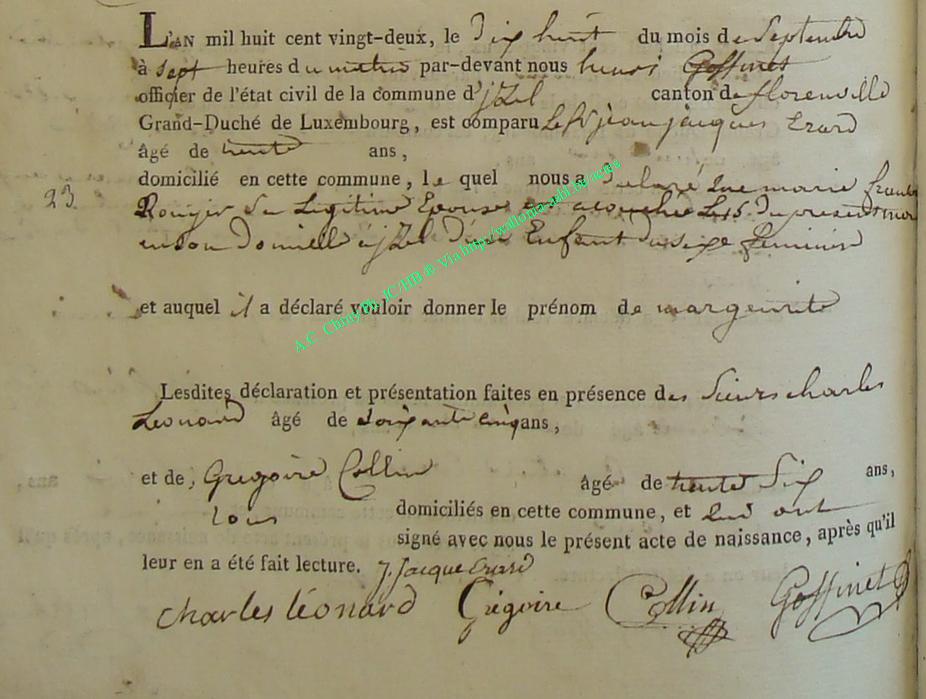 L'AN mil huit cent vingt-deux, le Dix huit du mois de Septembre
à Sept heures du matin par-devant nous henri Goffinet
officier de l'état civil de la commune d'jzel canton de florenville
Grand-Duché de Luxembourg, est comparu Le Sr jean jacques Erard
âgé de trente ans,
domicilié en cette commune, le quel nous a Declaré que marie
23
Rouger Sa Legitime Epouse est acouchée Le 16 Du present moi
en son Domicille à jzel D'un Enfant du Sexe feminin
et auquel il a déclaré vouloir donner le prénom de margerite
A.C. Chiny Ph. JC/HB ® Via http://wallonia-asbl.be/actes
Lesdites déclaration et présentation faites en présence des Sieurs charles
Leonard âgé de Soixante cinq ans,
et de, Gregoire Collin âgé de trente Six ans,
tous domiciliés en cette commune, et qui ont
signé avec nous le présent acte de naissance, après qu'il
leur en a été fait lecture. J. Jacque Erard
charles léonard Grégoire Collin Goffinet